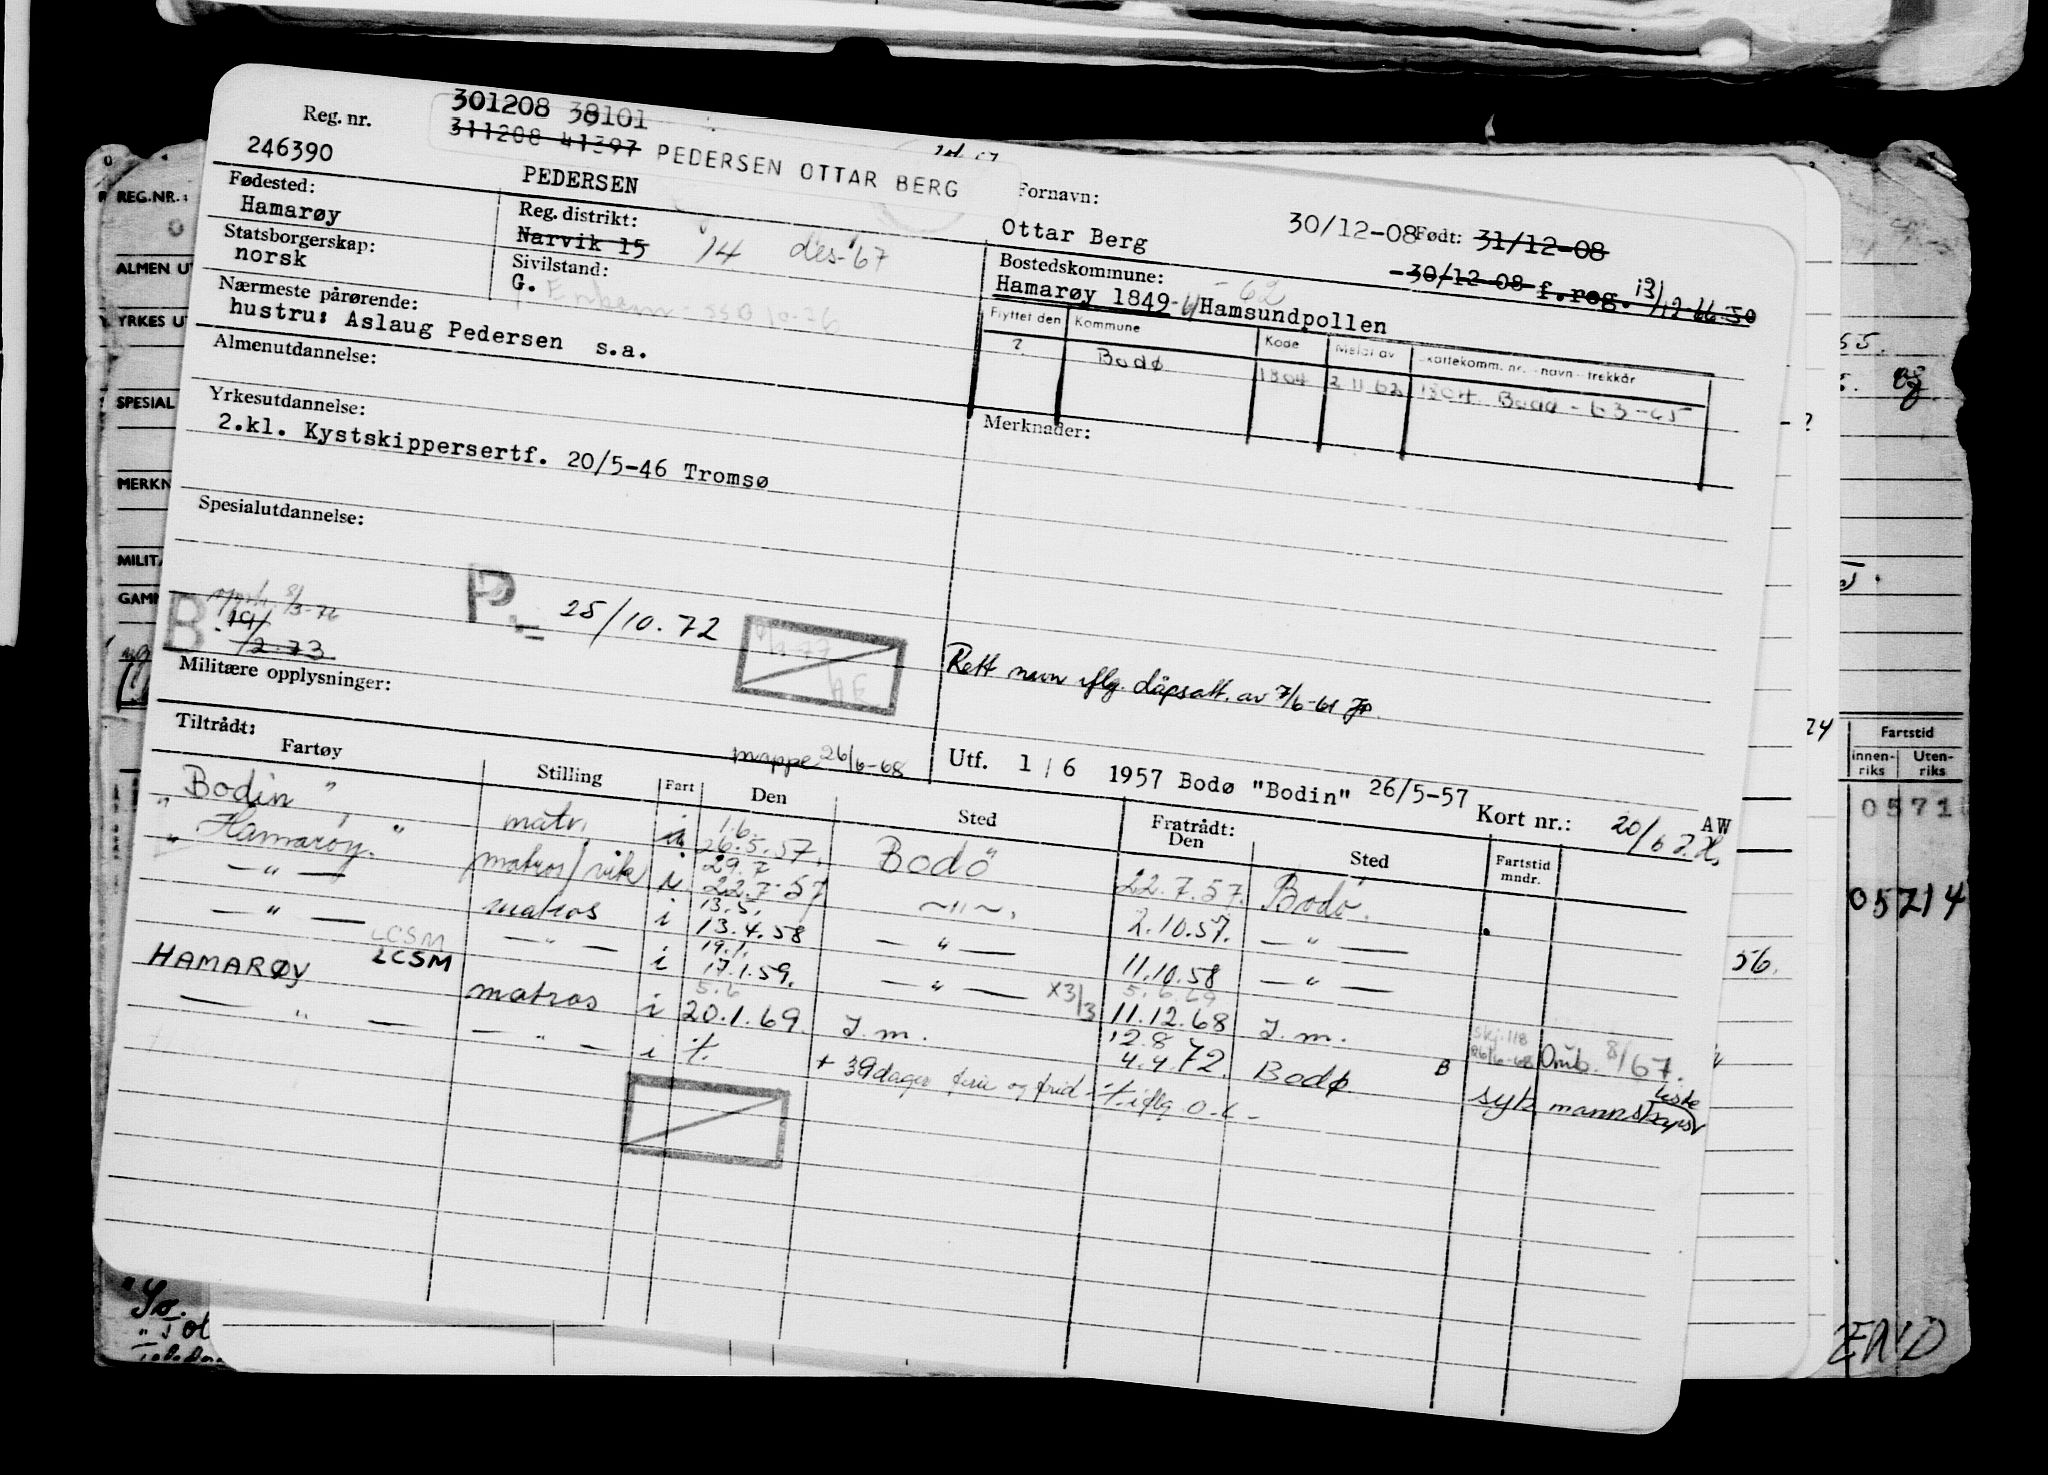 301208 38101
311208 41397 PEDERSEN OTTAR BERG
Reg. nr.
246390
PEDERSEN
Fornavn:
Ottar Berg
30/12-08 Født: 31/12-08
30/12-08 f.reg. 13/12-66 50
Fødested:
Hamarøy
Reg. distrikt:
Narvik 15 14 des-67
Statsborgerskap:
norsk
Sivilstand:
G.
Bostedskommune:
Hamarøy 1849 Hamsundpollen
-62
Nærmeste pårørende:
hustru: Aslaug Pedersen s.a.
Flyttet den Kommune Kode Meldt av Skattekomm. nr. - navn - trekkår
? Bodø 1804 2 11 62 1804 Bodø - 63-65
Almenutdannelse:
Yrkesutdannelse:
2.kl. Kystskippersertf. 20/5-46 Tromsø
Merknader:
Spesialutdannelse:
B 8/3-72
19/2-73
P. 25/10.72
Rett navn iflg. dåpsatt. av 7/6-61
Militære opplysninger:
mappe 26/6-68
Utf. 1/6 1957 Bodø "Bodin" 26/5-57 Kort nr.: 20/6 AW
Tiltrådt:
Fartøy Stilling Part Den Sted Fratrådt: Den Sted Fartstid mndr.
" Bodin " matr. 1.6. 26.5.57. Bodö 22.7.57. Bodø.
" Hamarøy. " matros/vik i 29.7 22.7.57 ~"~. 2.10.57. — " —
— " — matros i 13.5. 13.4.58 — " — 11.10.58 — " —
— " — — " — i 19.1. 17.1.59. — " — x3/3 5.6.69 11.12.68 J.m. Skj. 118 26/6-68 Omb. 8/67.
HAMARØY LCSM matros i 5.2 20.1.69. J.m. 12.8 4.4.72. Bodø B syk mannskapsliste
— " — — " — i + 39 dager ferie og frid iflg
REG.NR.:
ALMEN UT
YRKES UT
SPECIAL
MERKN
MILITÆ
GAMM
55.
56.
24
Fartstid
innen-
riks
Uten-
riks
0571
05714